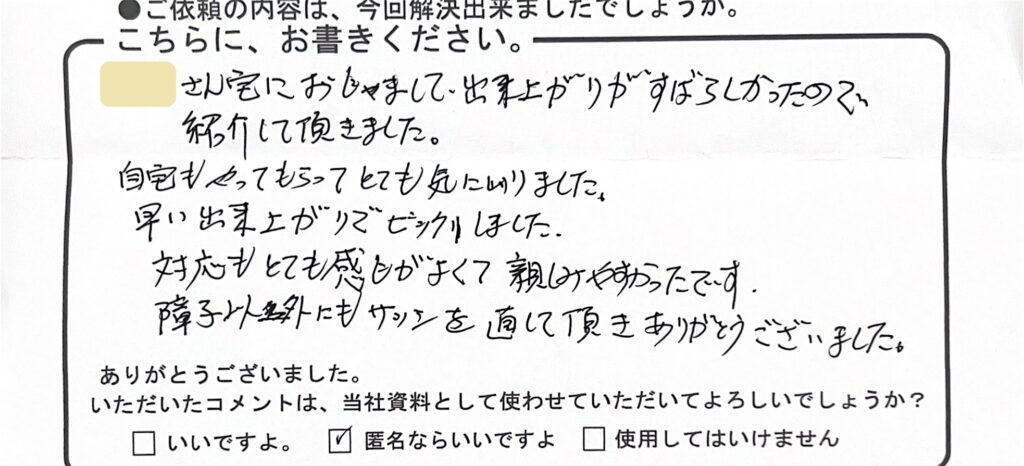 ●ご依頼の内容は、今回解決出来ましたでしょうか。
こちらに、お書きください。
さん宅におじゃまして、出来上がりがすばらしかったので、
紹介して頂きました。
自宅もやってもらってとても気に入りました。
早い出来上がりでビックリしました。
対応もとても感じがよくて親しみやすかったです。
障子以外にもサッシを直して頂きありがとうございました。
ありがとうございました。
いただいたコメントは、当社資料として使わせていただいてよろしいでしょうか?
□ いいですよ。 ☑ 匿名ならいいですよ □ 使用してはいけません